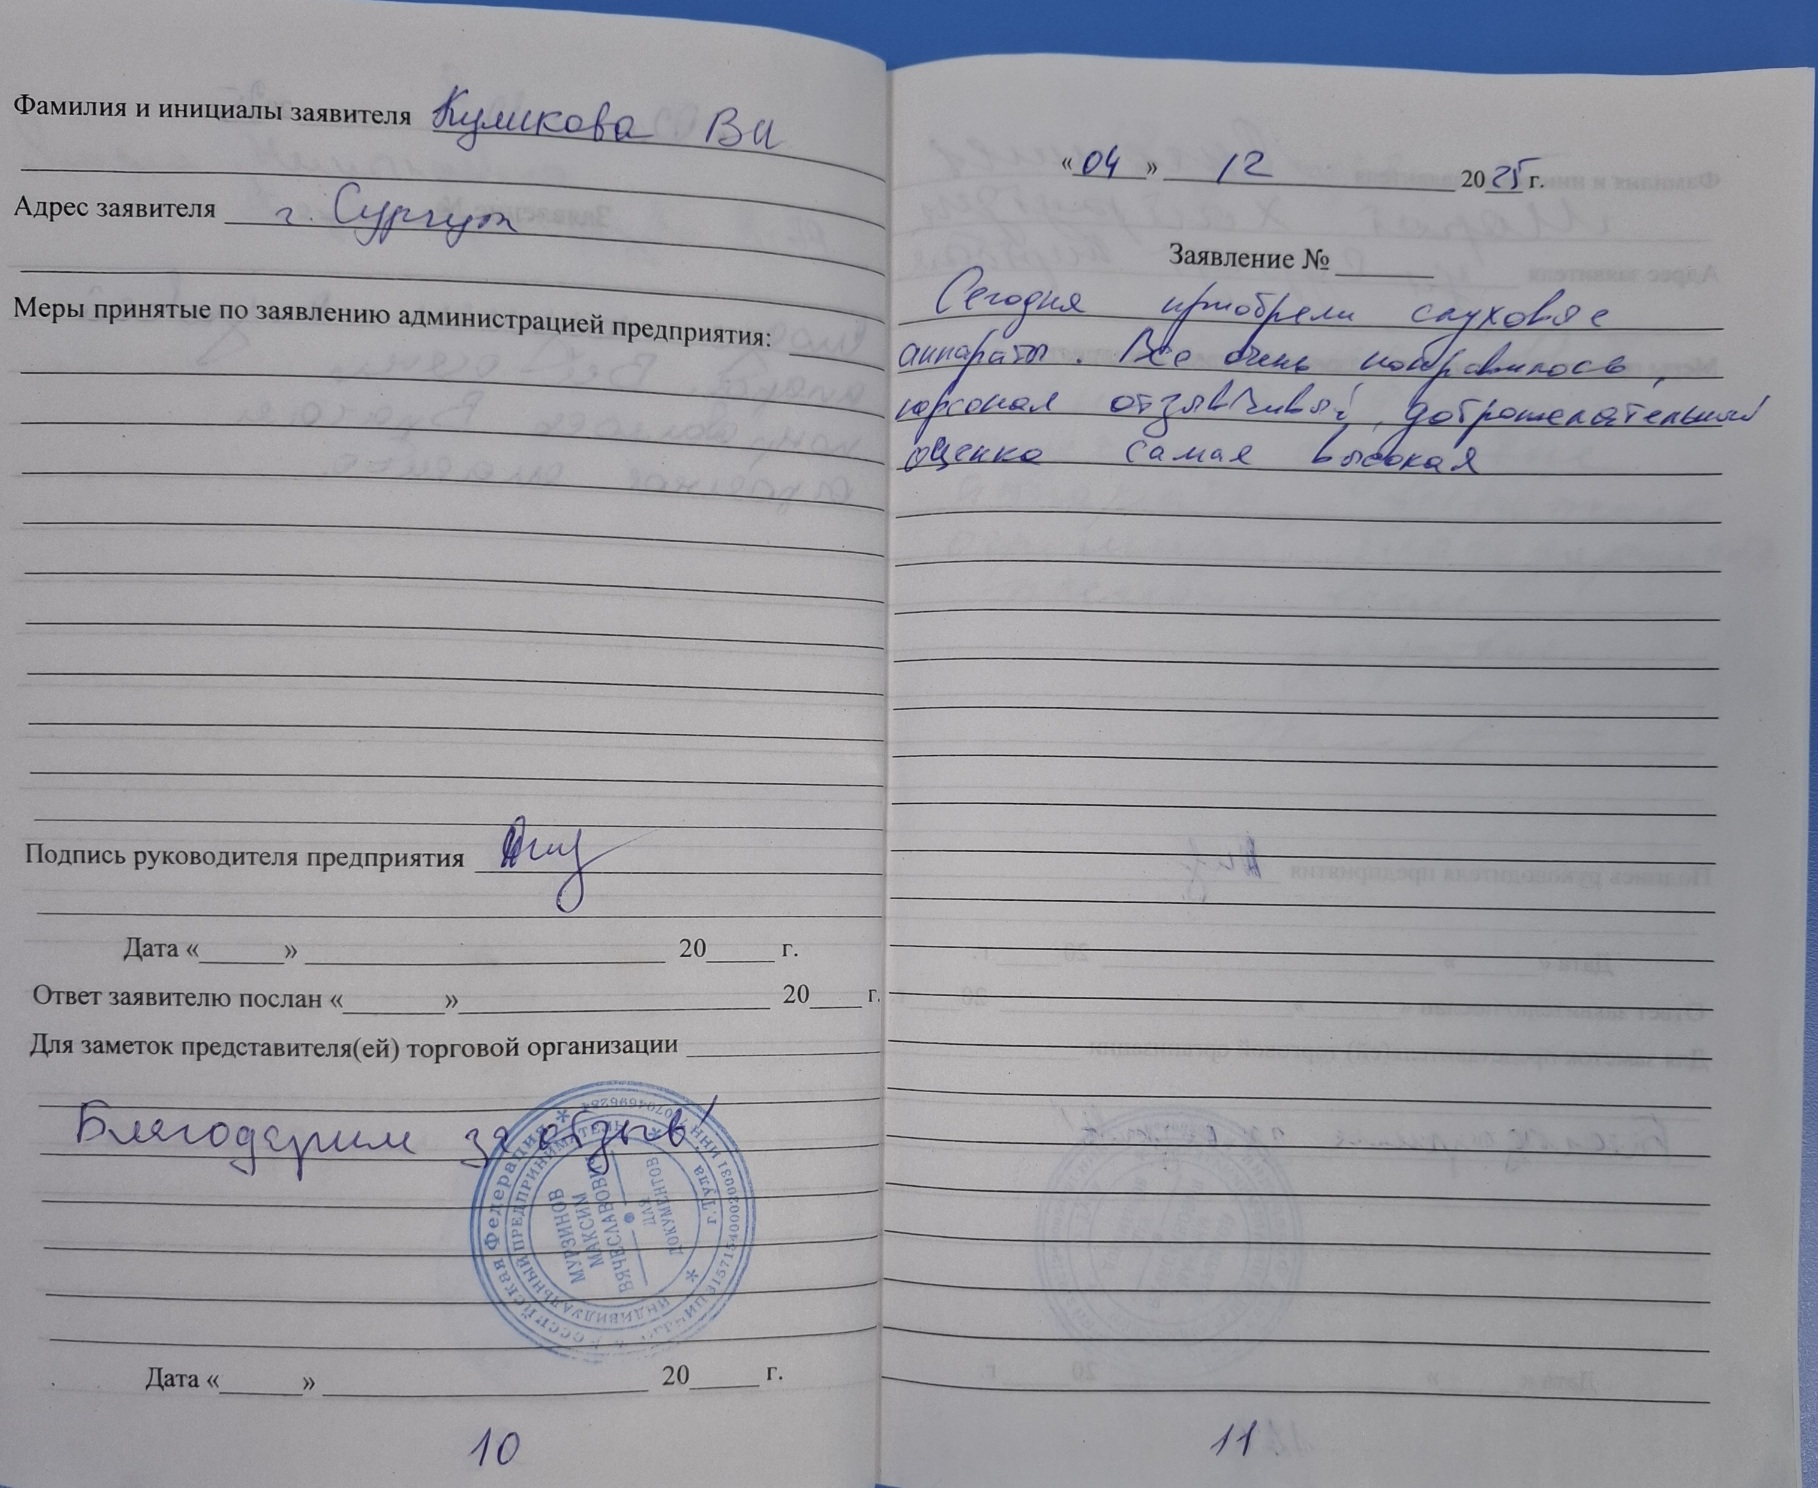 Фамилия и инициалы заявителя Куликова ВИ
Адрес заявителя г. Сургут
Меры принятые по заявлению администрацией предприятия:
Подпись руководителя предприятия
Дата «______» ______ 20____ г.
Ответ заявителю послан «______» ______ 20____ г.
Для заметок представителя(ей) торговой организации
Благодарим за отзыв!
Российская Федерация
ИНДИВИДУАЛЬНЫЙ ПРЕДПРИНИМАТЕЛЬ
г.Тула
МУРЗИНОВ
МАКСИМ
ВЯЧЕСЛАВОВИЧ
ДЛЯ
ДОКУМЕНТОВ
Дата «______» ______ 20____ г.
10
«04» 12 2025 г.
Заявление № ______
Сегодня приобрели слуховые
аппараты. Все очень понравилось,
персонал отзывчивый, доброжелательный
оценка самая высокая
11